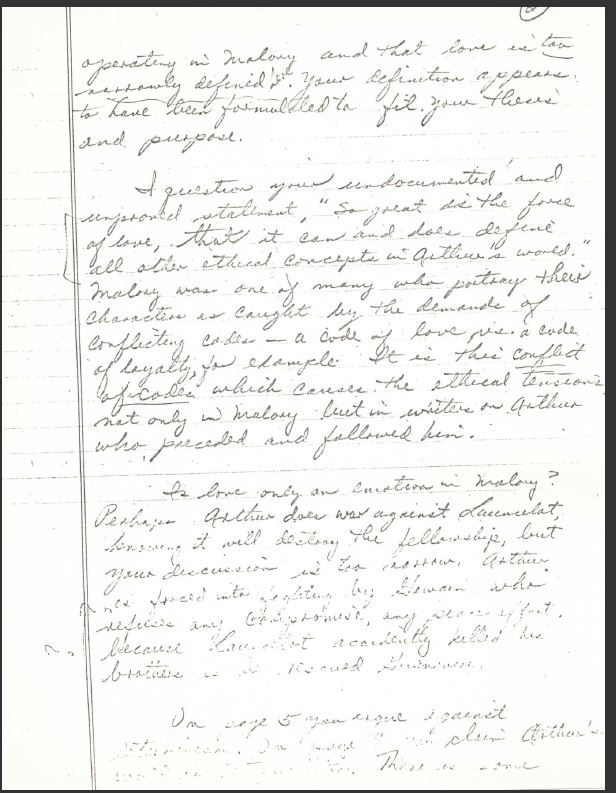 2
operating in Malory and that love is too
narrowly defined. Your definition appears
to have been formulated to fit your thesis
and purpose.
I question your undocumented and
unproved statement, "So great is the force
of love, that it can and does define
all other ethical concepts in Arthur's world."
Malory was one of many who portray their
characters as caught by the demands of
conflicting codes — a code of love vs. a code
of loyalty, for example. It is this conflict
of codes which causes the ethical tensions
not only in Malory but in writers on Arthur
who preceded and followed him.
Is love only an emotion in Malory?
Perhaps Arthur does war against Launcelot,
knowing it will destroy the fellowship, but
your discussion is too narrow. Arthur
is forced into fighting by Gawain who
refuses any compromise, any peace effort,
because Launcelot accidently killed his
brothers as he rescued Guinevere.
?
On page 5 you argue against
On page you claim Arthur's
There is some